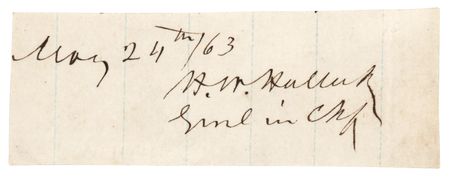 May 24th/63
H. W. Halleck
Genl in Chf